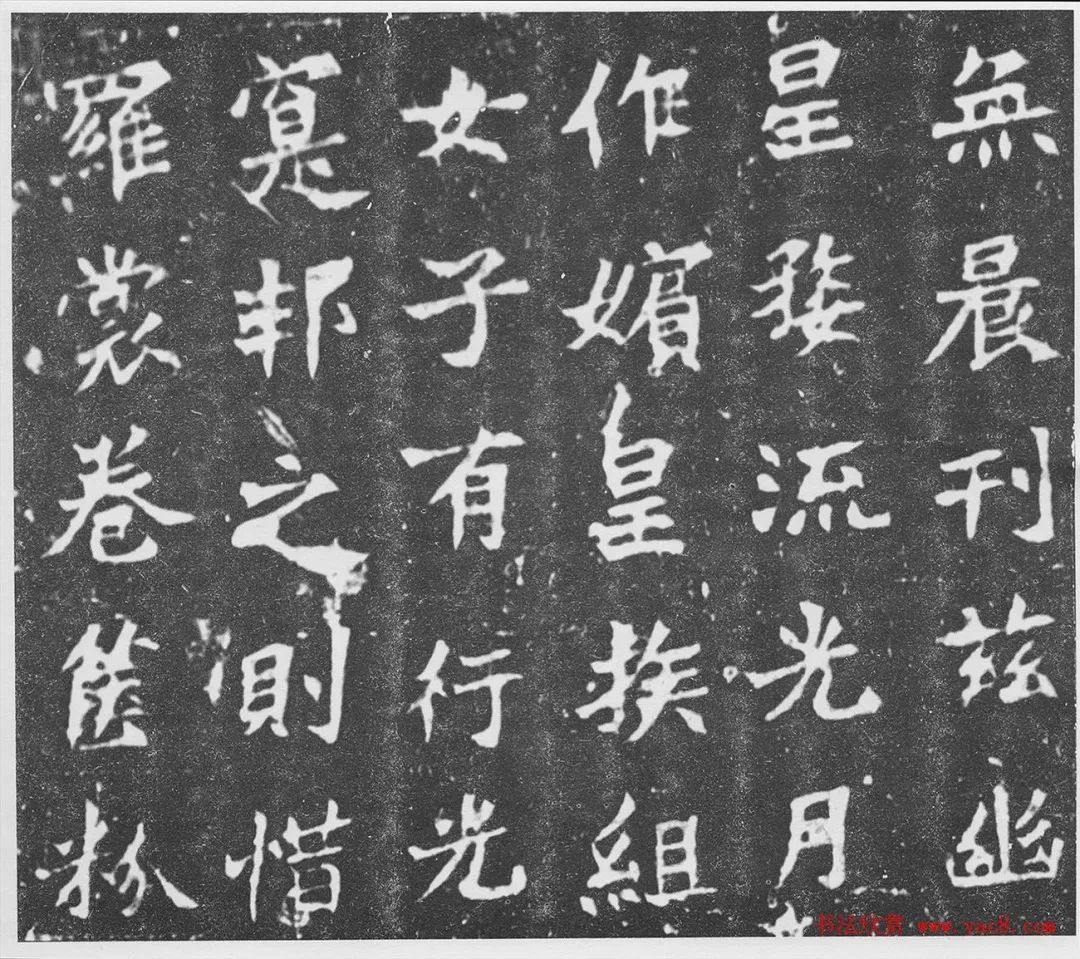 無晨刊茲幽
星婺流光月
作嬪皇族組
女子有行光
寔邦之則惜
羅裳卷篋粉
书法欣赏 www.yac8.com